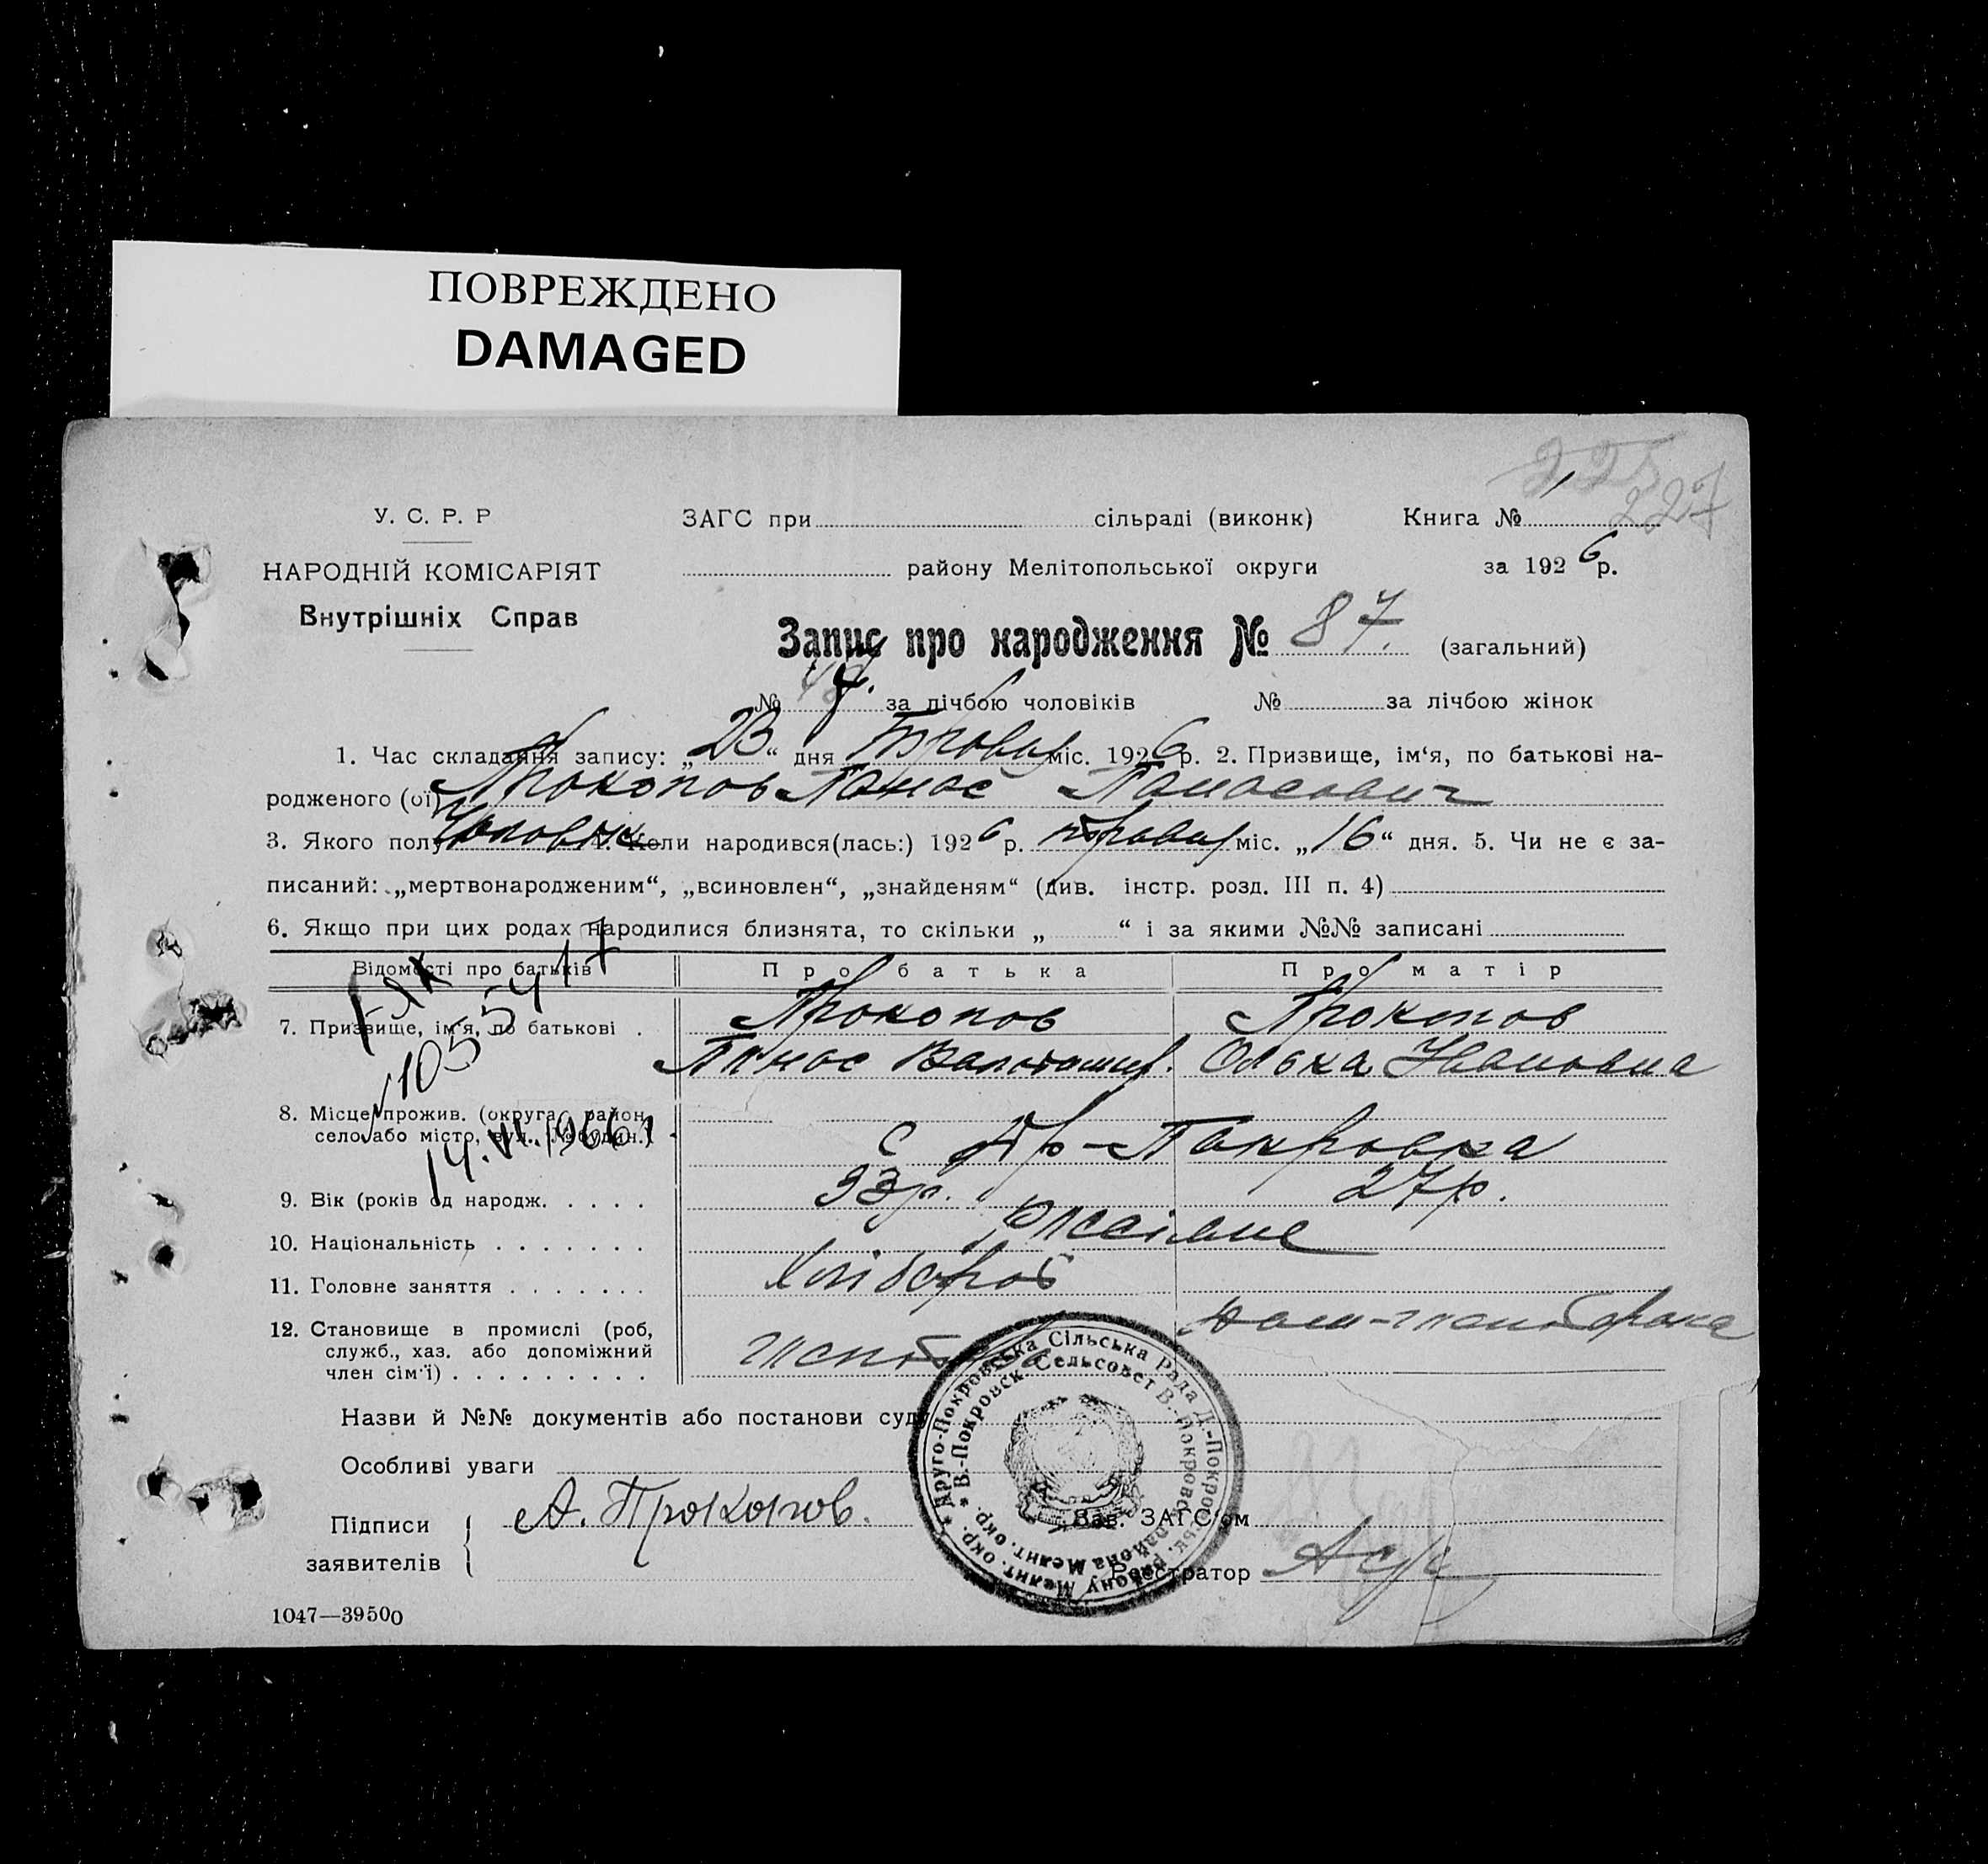 ПОВРЕЖДЕНО
DAMAGED
227
У. С. Р. Р
ЗАГС при сільраді (виконк) Книга № 1
НАРОДНІЙ КОМІСАРІЯТ
району Мелітопольської округи за 1926 р.
Внутрішніх Справ
Запис про народження № 87. (загальний)
№ за лічбою чоловіків № за лічбою жінок
1. Час складання запису: „23“ дня Травня міс. 1926 р. 2. Призвище, ім‘я, по батькові на-
родженого (ої) Прокопов Панас Панасович
3. Якого полу Чоловік 4. Коли народився(лась:) 1926 р. травня міс. „16“ дня. 5. Чи не є за-
писаний: „мертвонародженим“, „всиновлен“, „знайденям“ (див. інстр. розд. III п. 4)
6. Якщо при цих родах народилися близнята, то скільки „ “ і за якими №№ записані
Відомості про батьків Про батька Про матір
7. Призвище, ім‘я, по батькові . Прокопов Прокопов
Панас Ольха Ивановна
І-ЯХ
№ 1055417
14.VI.1966
8. Місце прожив. (округа, район,
село або місто, вул., № будин.)
с Др-Покровка
9. Вік (років од народж. . . . . 33р. 27р.
10. Національність . . . . . . .
11. Головне заняття . . . . . . . Хлібороб
12. Становище в промислі (роб,
служб., хаз. або допоміжний
член сім‘ї) . . . . . . . . .
Назви й №№ документів або постанови суду
Особливі уваги
Підписи
заявителів
А. Прокопов.
Зав. ЗАГС‘ом
Реєстратор
* Друго-Покровська Сільська Рада Д.-Покровськ. району Меліт. окр.
* В.-Покровск. Сельсовет В.-Покровск. района Мелит. окр.
1047—39500